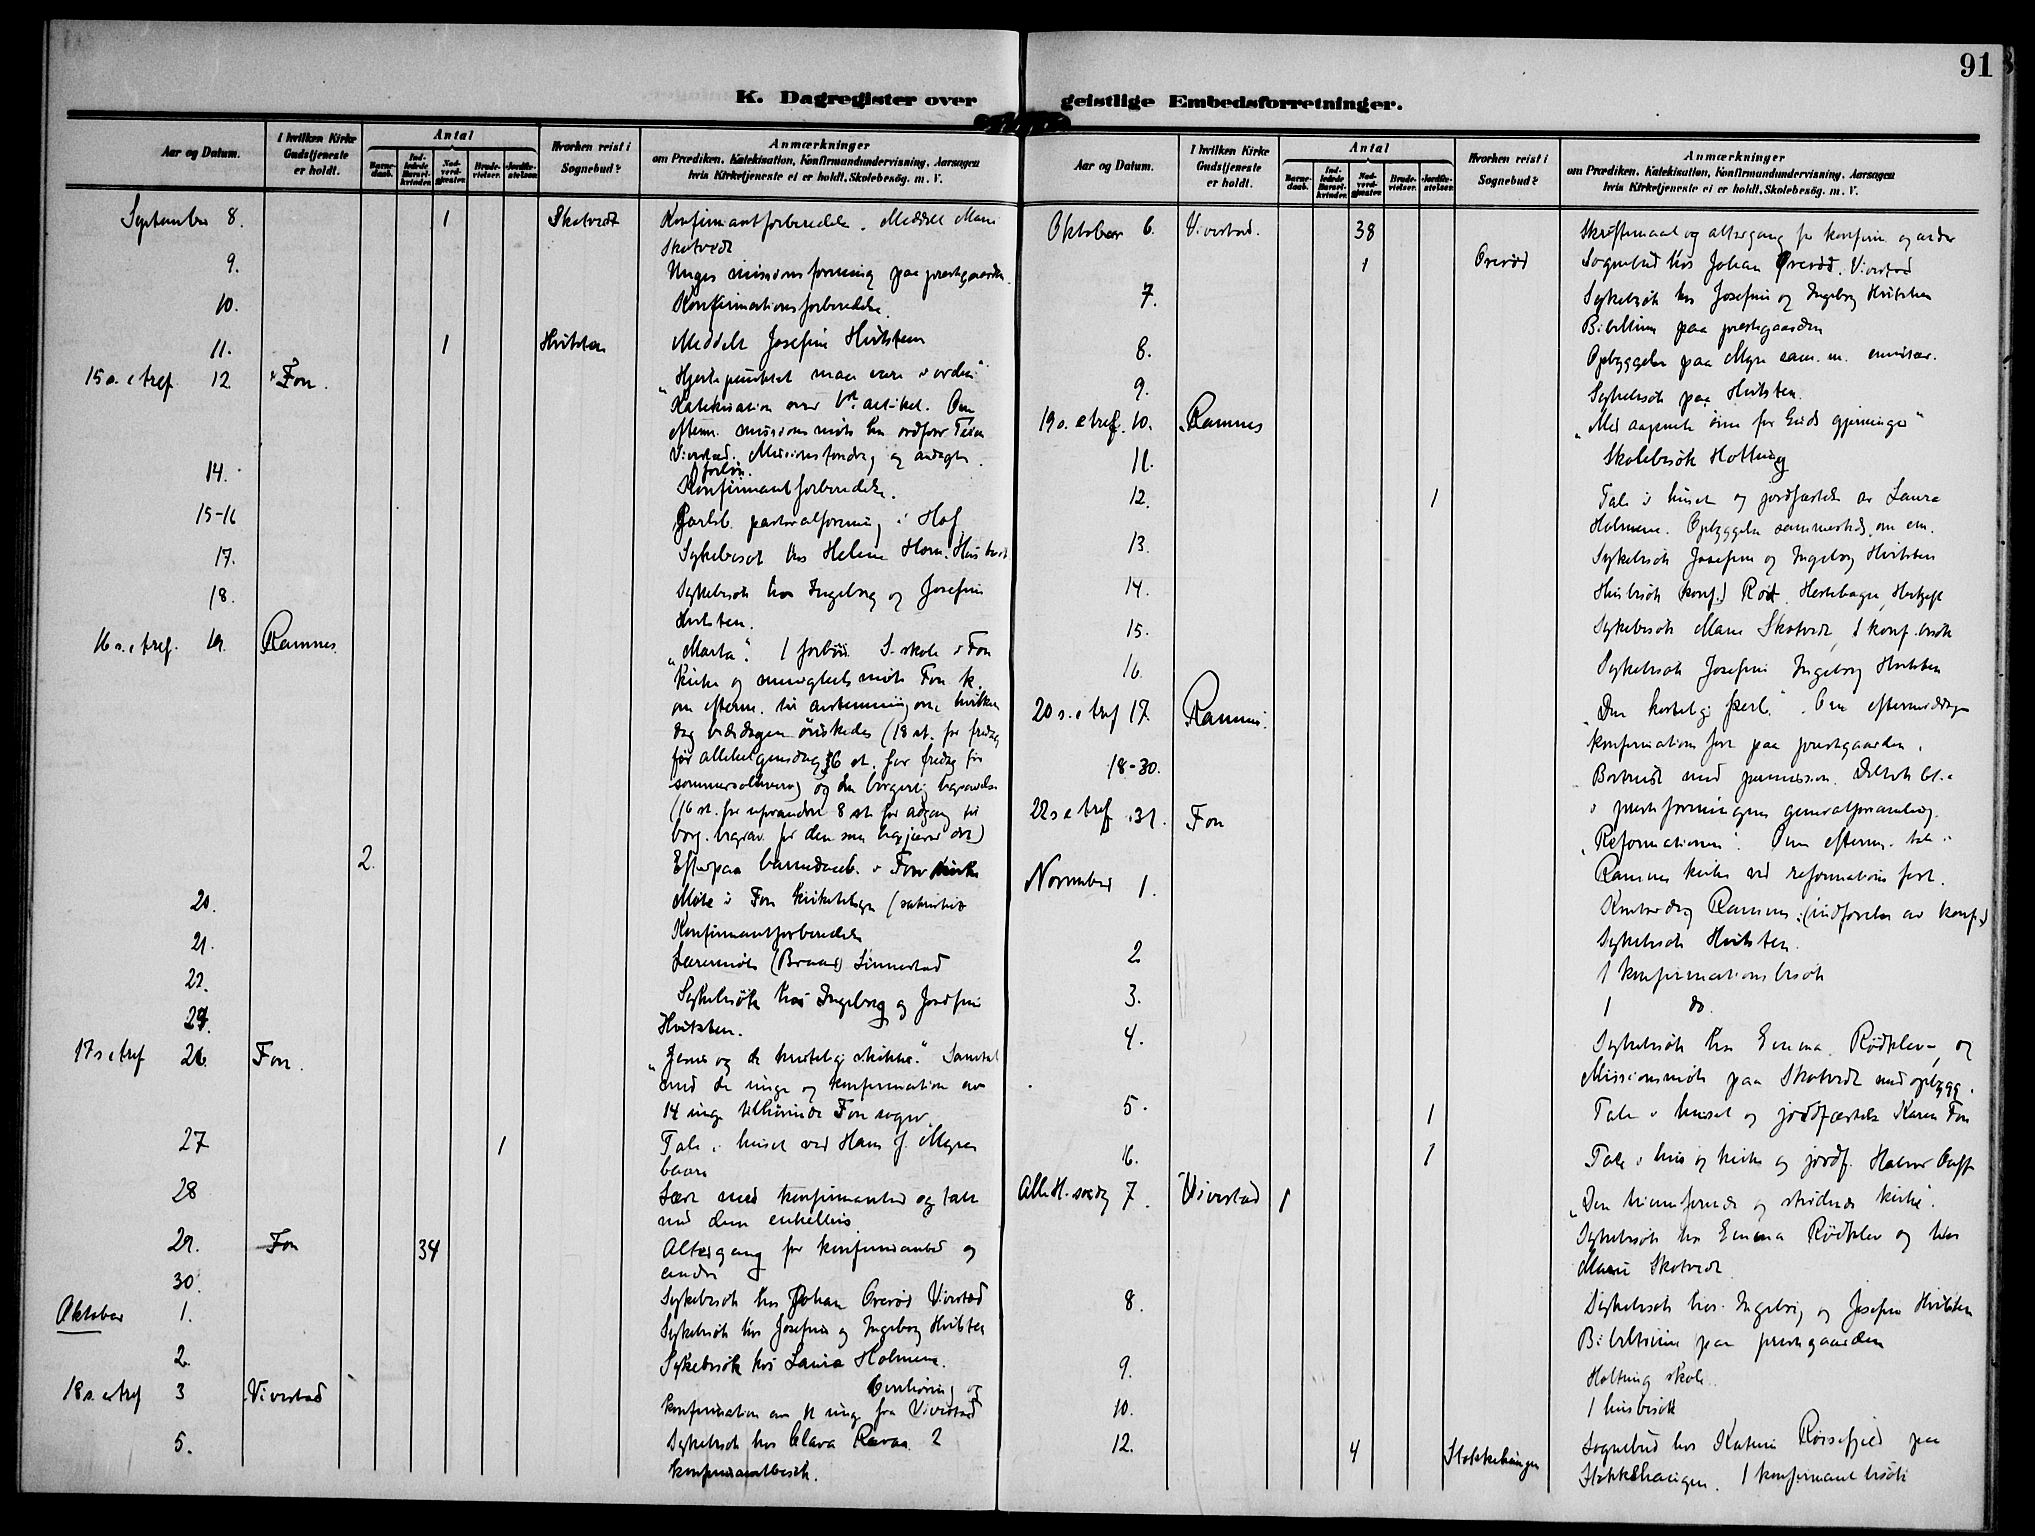 91
K. Dagregister over geistlige Embedsforretninger.
Aar og Datum.
I hvilken Kirke Gudstjeneste er holdt.
Antal
Barne-daab.
Ind-ledede Barsel-kvinder.
Nad-verd-gjester.
Brude-vielser.
Jordfæ-stelser.
Hvorhen reist i Sognebud?
Anmærkninger
om Prædiken, Katekisation, Konfirmandundervisning, Aarsagen
hvis Kirketjeneste ei er holdt, Skolebesøg. m. V.
September 8. 1 Skotvedt Konfirmantforberedelse. Meddelt Marie
Skotvedt
9. Unges missionsforening paa prestgaarden.
10. Konfirmationsforberedelse.
11. 1 Hvitsten Meddelt Josefine Hvitsten
15 s. e tref. 12 Fon. "Hjertepunktet maa være i orden"
Katekisation over artikel. Om
efterm. missionsmøte hos ordfører
Vivestad. Missionsforedrag og andagt.
14. Konfirmantforberedelse.
15-16 Jarlsb. pastoralforening i Hof
17. Sykebesøk hos Helene Horn. Husbesøk
18. Sykebesøk hos Ingeborg og Josefine
Hvitsten.
16 s. e tref. 19. Ramnes. "Marta". 1 forbøn. S. skole i Fon
kirke og menighetsmøte Fon k.
om efterm. til avstemning om hvilken
dag bededagen ønskedes (18 st. for fredag
før allehelgensdag, 36 st. for fredag før
sommersolhverv) og om borgerlig begravelse
(16 st. for uforandret 8 st. for adgang til
borg. begrav. for den som begjærer det)
2. Efterpaa barnedaab i Fon kirke
20. Møte i Fon kirketilsyn
21. Konfirmantforberedelse
22. Lærermøte (Braae) Linnestad
24. Sykebesøk hos Ingeborg og Josefine
Hvitsten.
17 s e tref 26. Fon. "Jesus og de kristelige skikke." Samtale
med de unge og konfirmation av
14 unge tilhørende Fon sogn.
27 1 Tale i huset ved Hans J. Myres
baare
28 Læst med konfirmanter og talt
med dem enkeltvis
29. Fon 34 Altergang for konfirmanter og
andre
30. Sykebesøk hos Johan Orerød Vivestad
Oktober 1. Sykebesøk hos Josefine og Ingeborg Hvitsten
2. Sykebesøk hos Laura Holmene.
18 s. e tref 3 Vivestad Overhøring og
konfirmation av 11 unge fra Vivestad
5. Sykebesøk hos Clara Revaa. 2
konfirmantbesøk.
Aar og Datum.
I hvilken Kirke Gudstjeneste er holdt.
Antal
Barne-daab.
Ind-ledede Barsel-kvinder.
Nad-verd-gjester.
Brude-vielser.
Jordfæ-stelser.
Hvorhen reist i Sognebud?
Anmærkninger
om Prædiken, Katekisation, Konfirmandundervisning, Aarsagen
hvis Kirketjeneste ei er holdt, Skolebesøg. m. V.
Oktober 6. Vivestad. 38 Skriftemaal og altergang for konfirm. og andre
1 Orerød Sognebud hos Johan Orerød. Vivestad
7. Sykebesøk hos Josefine og Ingeborg Hvitsten
Bibeltime paa prestegaarden
8. Opbyggelse paa Myre sam. m. emissær.
9. Sykebesøk paa Hvitsten.
19 s. e tref. 10. Ramnes "Med aapente øine for Guds gjerninger"
11. Skolebesøk Holtung
12. 1 Tale i huset og jordfæstelse av Laura
Holmene. Opbyggelse sammesteds om em.
13. Sykebesøk Josefine og Ingeborg Hvitsten
14. Husbesøk (konf.) Rød. Hestehagen,
15. Sykebesøk Marie Skotvedt, 1 konf. besøk
16. Sykebesøk Josefine Ingeborg Hvitsten
20 s. e tref 17. Ramnes. "Den kostelige perle". Om eftermiddagen
konfirmationsfest paa prestgaarden.
18-30. Bortreist med permission. Deltok bl. a
i presteforeningens generalforsamling.
22 s e tref 31. Fon "Reformationen". Om efterm. tale i
Ramnes kirke ved reformationsfest.
November 1. Kontordag Ramnes. (indførelse av konf.)
Sykebesøk Hvitsten.
2 1 konfirmationsbesøk
3. 1 do.
4. Sykebesøk hos Emma Rødklev, og
Missionsmøte paa Skotvedt med opbygg.
5. 1 Tale i huset og jordfæstelse Karen Fon
6. 1 Tale i hus og kirke og jordf. Halvor
Alle H. søndag 7. Vivestad 1 "Den triumferende og stridende kirke".
Sykebesøk hos Emma Rødklev og hos
Marie Skotvedt
8. Sykebesøk hos Ingeborg og Josefine Hvitsten
Bibeltime paa prestegaarden
9. Holtung skole.
10. 1 husbesøk
12. 4 Stokkehaugen Sognebud hos Katrine Rørsefjeld paa
Stokkehaugen. 1 konfirmantbesøk